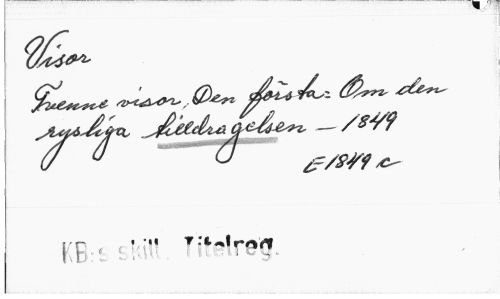 Visor
Tvenne visor, Den första: Om den
rysliga tilldragelsen – 1849
E 1849 c
KB:s skill. Titelreg.